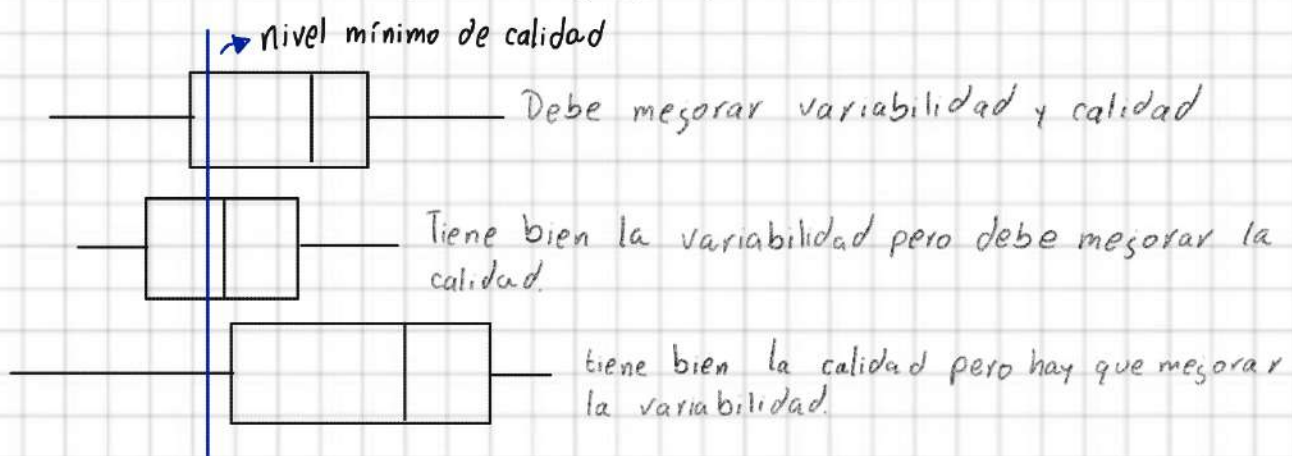 nivel mínimo de calidad
Debe mejorar variabilidad y calidad
Tiene bien la variabilidad pero debe mejorar la
calidad.
tiene bien la calidad pero hay que mejorar
la variabilidad.